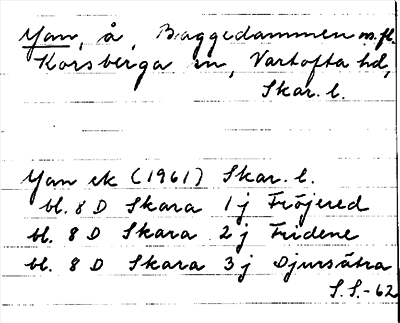 Yan, å, Baggedammen m.fl.
Korsberga sn, Vartofta hd,
Skar. l.
Yan ek (1961) Skar. l.
bl. 8 D Skara 1 j Fröjered
bl. 8 D Skara 2 j Fridene
bl. 8 D Skara 3 j Djursätra
S.S.-62